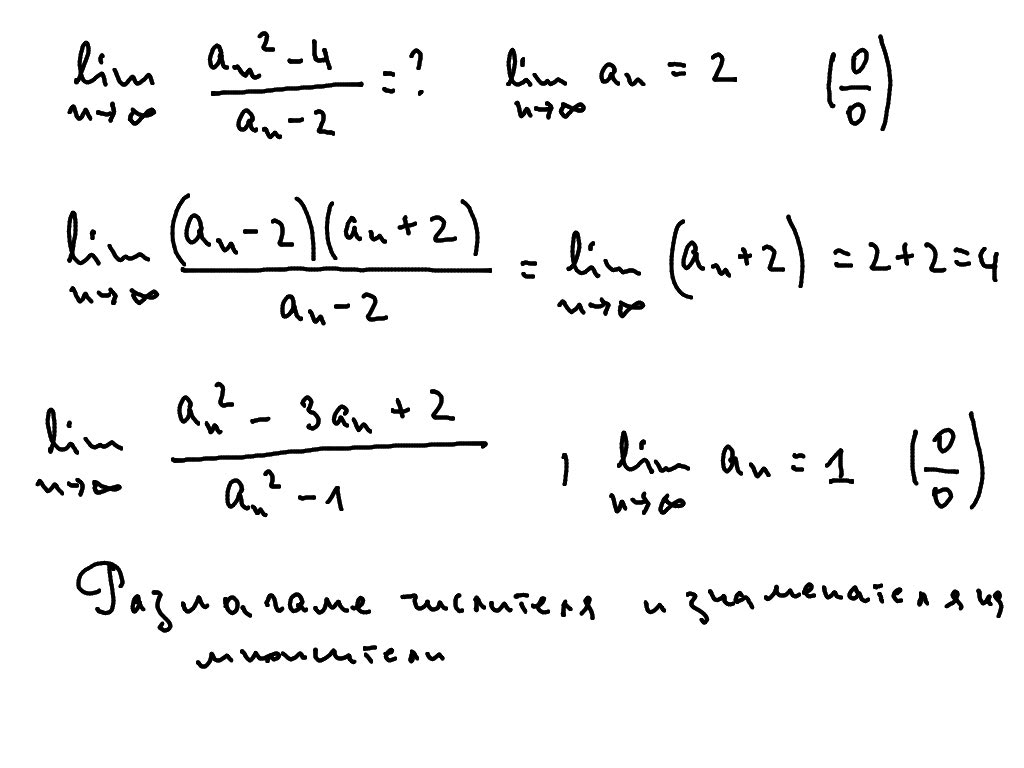 lim n→∞ (aₙ² - 4)/(aₙ - 2) = ? lim n→∞ aₙ = 2 (0/0)
lim n→∞ (aₙ - 2)(aₙ + 2)/(aₙ - 2) = lim n→∞ (aₙ + 2) = 2 + 2 = 4
lim n→∞ (aₙ² - 3aₙ + 2)/(aₙ² - 1) , lim n→∞ aₙ = 1 (0/0)
Разлагаме числителя и знаменателя на
множители